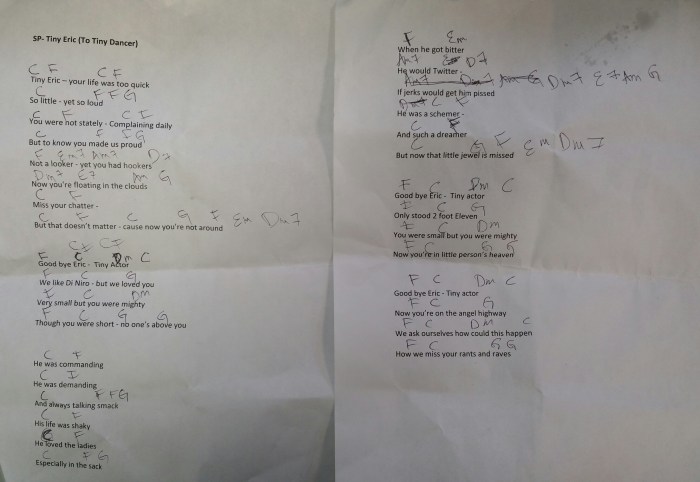 SP- Tiny Eric (To Tiny Dancer)
C F C F
Tiny Eric – your life was too quick
C F F G
So little - yet so loud
C F C F
You were not stately - Complaining daily
C F F G
But to know you made us proud
F Em7 Am7 D7
Not a looker - yet you had hookers
Dm7 E7 Am G
Now you're floating in the clouds
C F
Miss your chatter -
C F C G F Em Dm7
But that doesn't matter - cause now you're not around
F C Dm C
Good bye Eric - Tiny Actor
F C G
We like Di Niro - but we loved you
F C Dm
Very small but you were mighty
F C G G
Though you were short - no one's above you
C F
He was commanding
C F
He was demanding
C F F G
And always talking smack
C F
His life was shaky
C F
He loved the ladies
C F G
Especially in the sack
F Em
When he got bitter
Am7 D7
He would Twitter
Dm7 E7 Am G
If jerks would get him pissed
C F
He was a schemer -
C F
And such a dreamer
C G F Em Dm7
But now that little jewel is missed
F C Dm C
Good bye Eric - Tiny actor
F C G
Only stood 2 foot Eleven
F C Dm
You were small but you were mighty
F C G G
Now you're in little person's heaven
F C Dm C
Good bye Eric - Tiny actor
F C G
Now you're on the angel highway
F C Dm C
We ask ourselves how could this happen
F C G G
How we miss your rants and raves